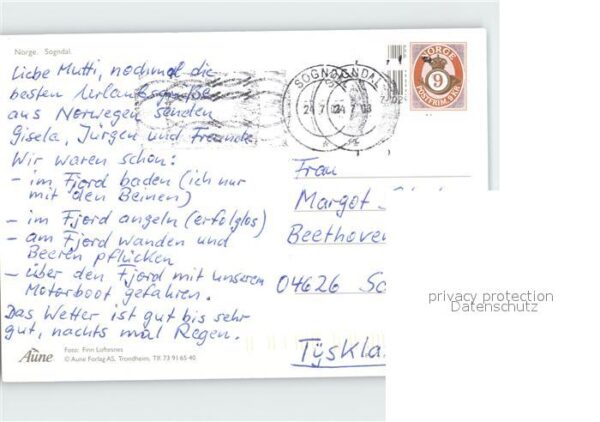 Norge. Sogndal.
Liebe Mutti, nochmal die
besten Urlaubsgrüße
aus Norwegen senden
Gisela, Jürgen und Freunde
Wir waren schon:
- im Fjord baden (ich nur
mit den Beinen)
- im Fjord angeln (erfolglos)
- am Fjord wandern und
Beeren pflücken
- über den Fjord mit unserem
Motorboot gefahren.
Das Wetter ist gut bis sehr
gut, nachts mal Regen.
Aune
Foto: Finn Loftesnes
© Aune Forlag AS, Trondheim. Tlf: 73 91 65 40
SOGNDAL
NORGE
9
POSTFRIM. BKR
Frau
Margot
Beethoven
04626
Tyskla
privacy protection
Datenschutz